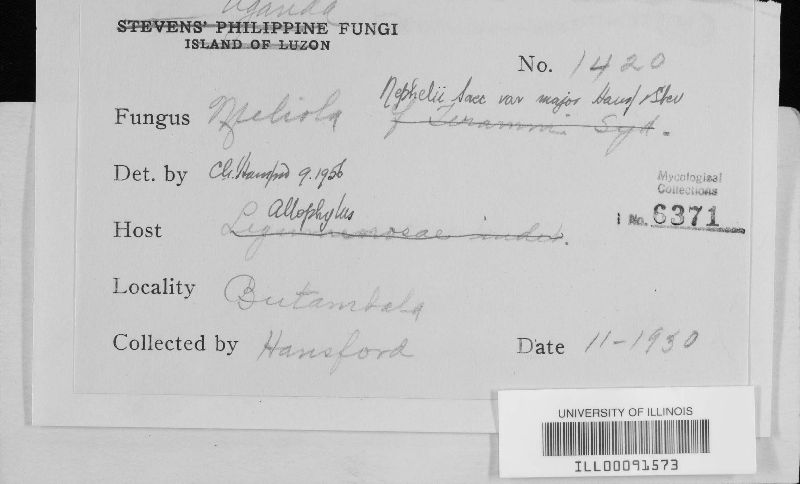 Uganda
STEVENS' PHILIPPINE FUNGI
ISLAND OF LUZON
No. 1420
Nephelii Sacc var major Hansf & Stev
Fungus Meliola f Teramni Syd.
Det. by C.G. Hansford 9.1956
Mycological
Collections
No. 6371
Allophylus
Host Leguminosae indet.
Locality Butambala
Collected by Hansford Date 11-1930
UNIVERSITY OF ILLINOIS
ILL00091573